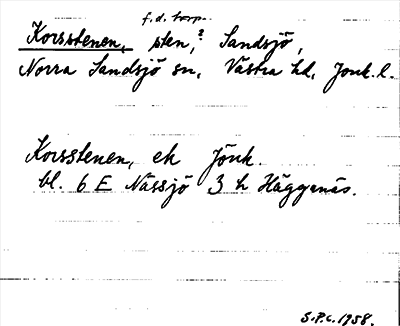 f.d. torp.
Korsstenen, sten,? Sandsjö,
Norra Sandsjö sn, Västra hd, Jönk. l.
Korsstenen, ek Jönk.
bl. 6 E Nässjö 3 h Häggenäs.
S.P.C. 1958.